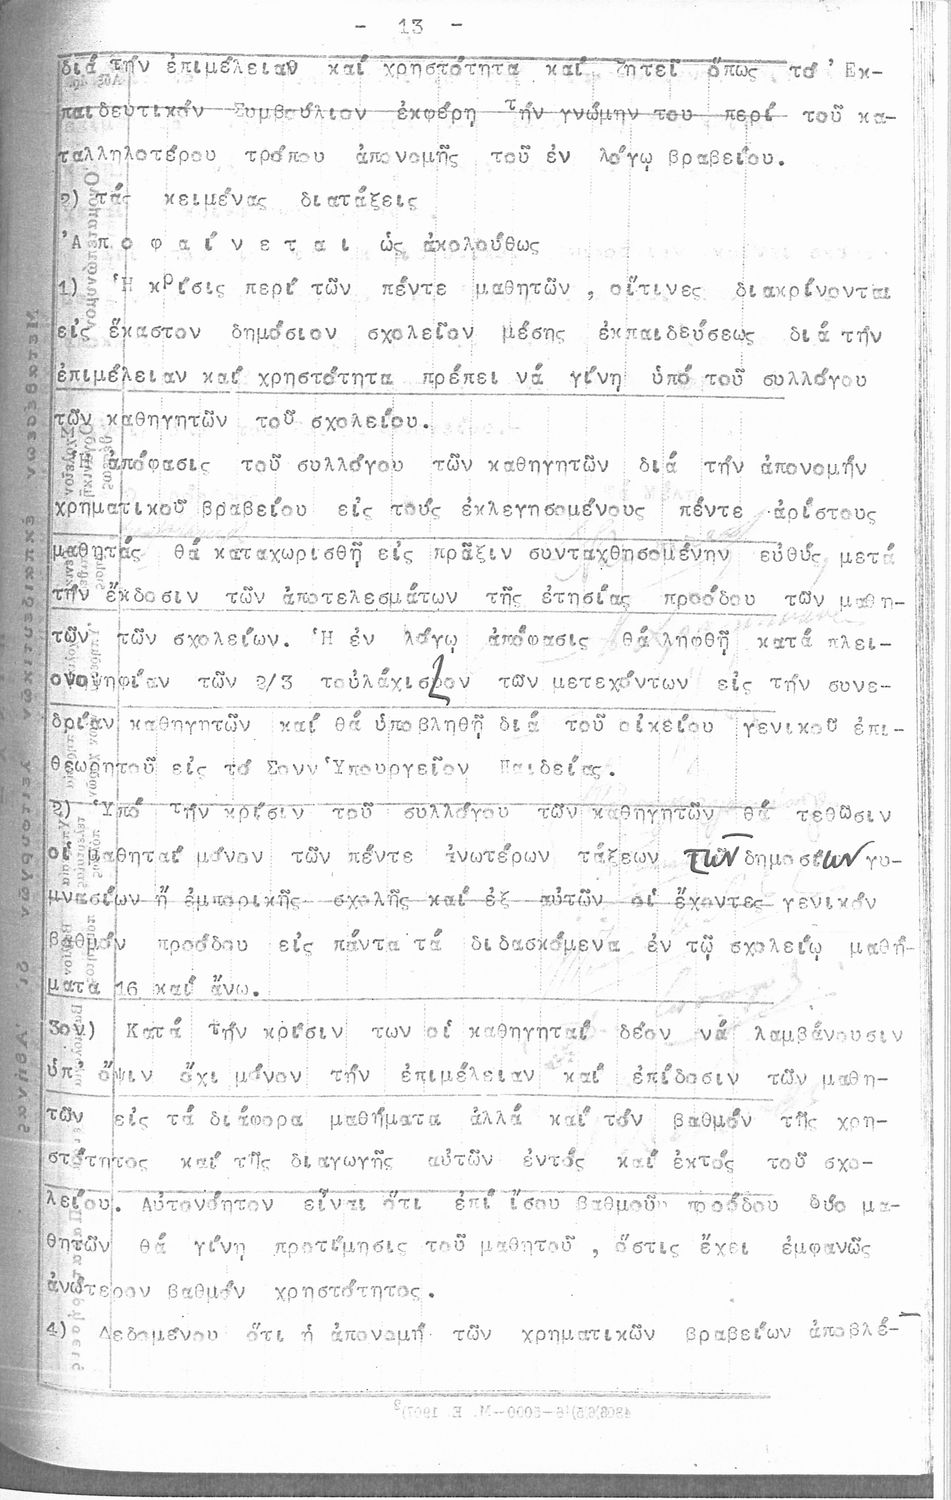 - 13 -
διά τήν ἐπιμέλειαν καί χρηστότητα καί ζητεῖ ὅπως τό Ἐκ-
παιδευτικόν Συμβούλιον ἐκφέρῃ τήν γνώμην του περί τοῦ κα-
ταλληλοτέρου τρόπου ἀπονομῆς τοῦ ἐν λόγῳ βραβείου.
2) τάς κειμένας διατάξεις
Ἀ π ο φ α ί ν ε τ α ι ὡς ἀκολούθως
1) Ἡ κρίσις περί τῶν πέντε μαθητῶν , οἵτινες διακρίνονται
εἰς ἕκαστον δημόσιον σχολεῖον μέσης ἐκπαιδεύσεως διά τήν
ἐπιμέλειαν καί χρηστότητα πρέπει νά γίνῃ ὑπό τοῦ συλλόγου
τῶν καθηγητῶν τοῦ σχολείου.
Ἡ ἀπόφασις τοῦ συλλόγου τῶν καθηγητῶν διά τήν ἀπονομήν
χρηματικοῦ βραβείου εἰς τούς ἐκλεγησομένους πέντε ἀρίστους
μαθητάς θά καταχωρισθῇ εἰς πρᾶξιν συνταχθησομένην εὐθύς μετά
τήν ἔκδοσιν τῶν ἀποτελεσμάτων τῆς ἐτησίας προόδου τῶν μαθη-
τῶν τῶν σχολείων. Ἡ ἐν λόγῳ ἀπόφασις θά ληφθῇ κατά πλει-
ονοψηφίαν τῶν 2/3 τοὐλάχισ ον τῶν μετεχόντων εἰς τήν συνε-
δρίαν καθηγητῶν καί θά ὑποβληθῇ διά τοῦ οἰκείου γενικοῦ ἐπι-
θεωρητοῦ εἰς τό Σονν Ὑπουργεῖον Παιδείας.
2) Ὑπό τήν κρίσιν τοῦ συλλόγου τῶν καθηγητῶν θά τεθῶσιν
οἱ μαθηταί μόνον τῶν πέντε ἀνωτέρων τάξεων τῶν δημοσίων γυ-
μνασίων ἤ ἐμπορικῆς σχολῆς καί ἐξ αὐτῶν οἱ ἔχοντες γενικόν
βαθμόν προόδου εἰς πάντα τά διδασκόμενα ἐν τῷ σχολείῳ μαθή-
ματα 16 καί ἄνω.
3ον) Κατά τήν κρίσιν των οἱ καθηγηταί δέον νά λαμβάνουσιν
ὑπ' ὄψιν ὄχι μόνον τήν ἐπιμέλειαν καί ἐπίδοσιν τῶν μαθη-
τῶν εἰς τά διάφορα μαθήματα ἀλλά καί τόν βαθμόν τῆς χρη-
στότητος καί τῆς διαγωγῆς αὐτῶν ἐντός καί ἐκτός τοῦ σχο-
λείου. Αὐτονόητον εἶναι ὅτι ἐπί ἴσου βαθμοῦ προόδου δύο μα-
θητῶν θά γίνῃ προτίμησις τοῦ μαθητοῦ , ὅστις ἔχει ἐμφανῶς
ἀνώτερον βαθμόν χρηστότητος.
4) Δεδομένου ὅτι ἡ ἀπονομή τῶν χρηματικῶν βραβείων ἀποβλέ-